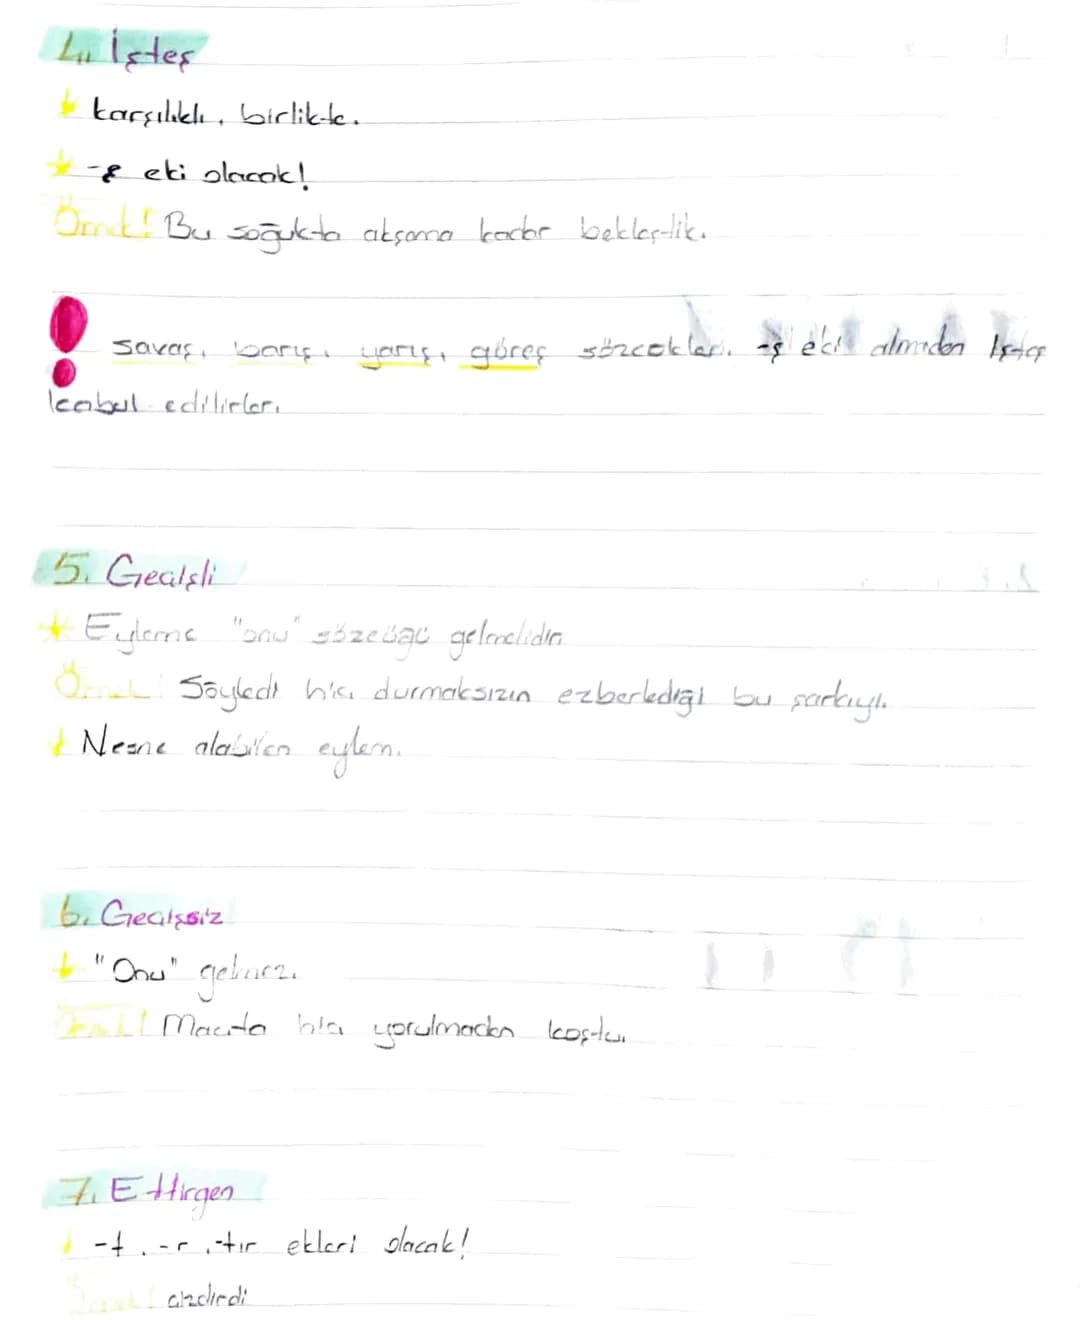 4. İşteş
karşılıklı, birlikte.
-ş eki olacak!
Örnek! Bu soğukta akşama kadar bekleştik.
! savaş, barış, yarış, güreş sözcükleri, -ş eki almadan İşteş
kabul edilirler.
5. Geçişli
Eyleme "onu" sözcüğü gelmelidir
Örnek! Söyledi hiç durmaksızın ezberlediği bu şarkıyı.
Nesne alabilen eylem.
6. Geçişsiz
"Onu" gelmez.
Örnek! Maçta hiç yorulmadan koştu.
7. Ettirgen
-t, -r, -tır ekleri olacak!
Örnek! çizdirdi